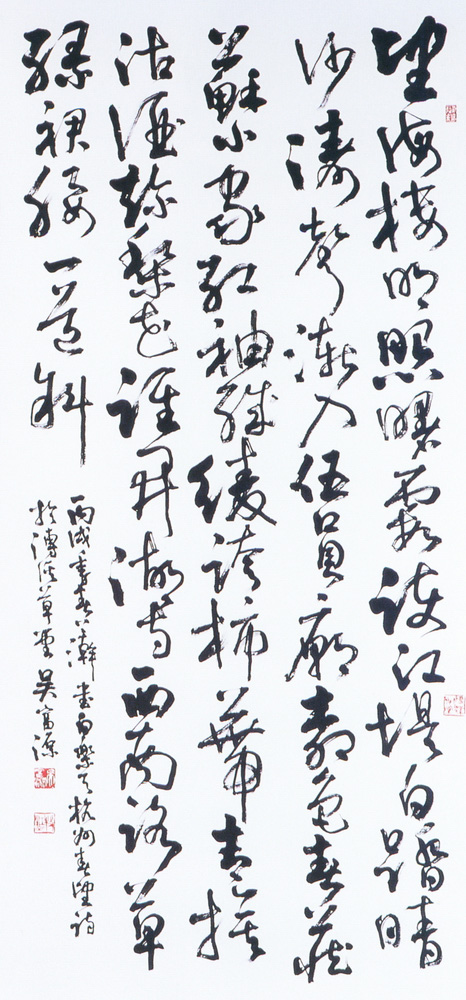 望海樓明照曙霞護江堤白踏晴
沙濤聲漸入伍員廟色春藏
蘇小家紅袖織綾誇柿蒂青旗
沽酒趁梨花誰開湖寺西南路草
綠裙腰一道斜
丙戌季春澣書白樂天杭州春望詩
於草堂吳富源